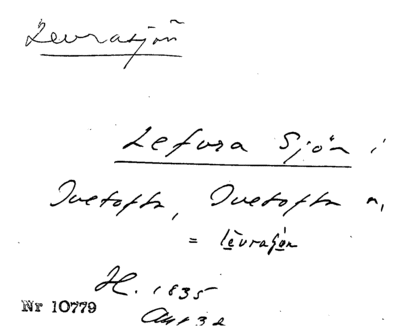 Levrasjön
Lefvra Sjön i
Ivetofta, Ivetofta n,
= lēvraʃön
H. 1835
Nr 10779